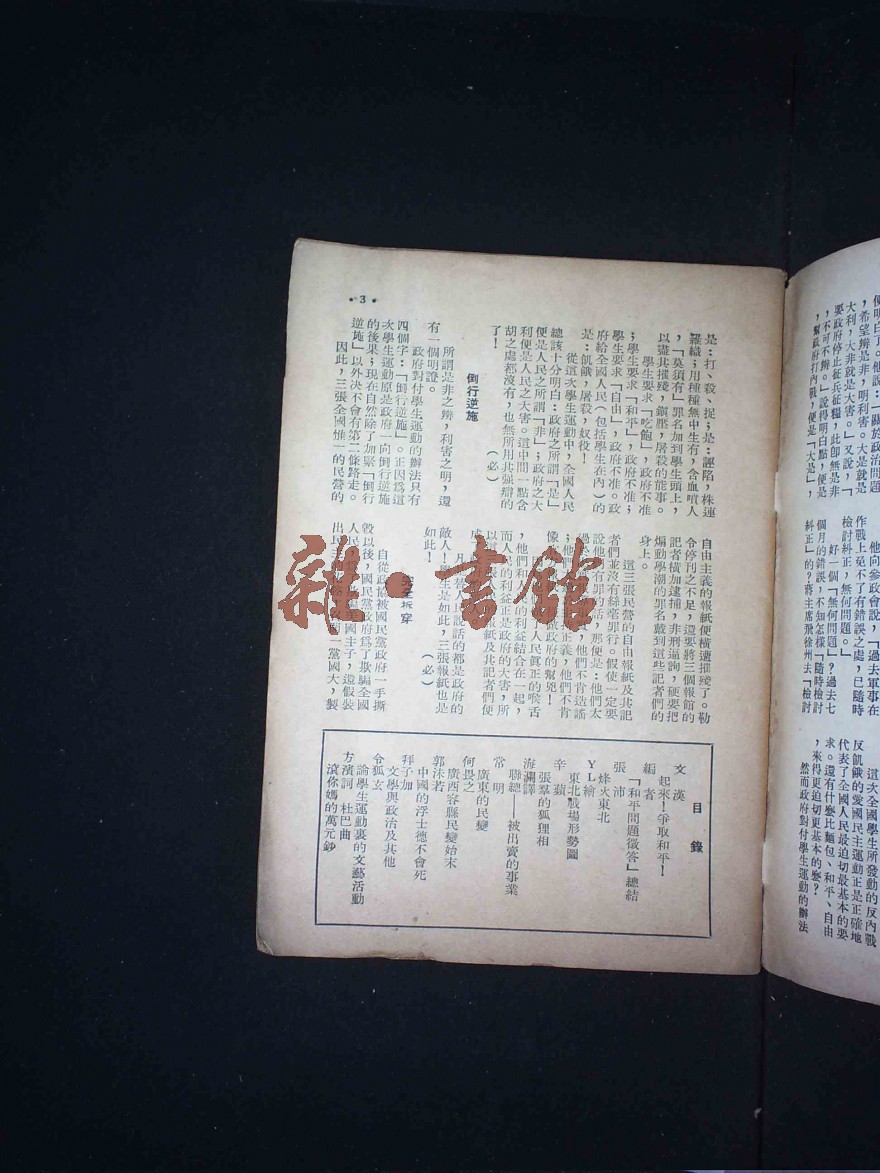 便明白了。他說：「關於政治問題
，希望辨是非，明利害。大是就是
大利，大非就是大害。」又說，「
要政府停止征兵征糧，此卽無是非
，不可不辨。」說得明白點，便是
，幫政府打內戰，便是「大是」，
他向參政會說，「過去軍事在
作戰上免不了有錯誤之處，已隨時
檢討糾正，無何問題。」
好一個「無何問題」？過去七
個月的錯誤，不知怎樣「隨時檢討
糾正」的？蔣主席飛徐州去「檢討
這次全國學生所發動的反內戰
反飢餓的愛國民主運動正是正確地
代表了全國人民最迫切最基本的要
求。還有什麽比麵包、和平、自由
，來得更迫切更基本的麽？
然而政府對付學生運動的辦法
是：打、殺、捉；是：誣陷，株連
羅織；用種種無中生有，含血噴人
，「莫須有」罪名加到學生頭上，
以盡其摧殘，鎮壓，屠殺的能事。
學生要求「吃飽」，政府不准
；學生要求「和平」，政府不准；
學生要求「自由」，政府不准。政
府給全國人民（包括學生在內）的
是：飢餓，屠殺，奴役！
從這次學生運動中，全國人民
總該十分明白：政府之所謂「是」
便是人民之所謂「非」；政府之大
利便是人民之大害。這中間一點含
胡之處都沒有，也無所用其强辯的
了！
（必）
倒行逆施
所謂是非之辨，利害之明，還
有一個明證。
政府對付學生運動的辦法只有
四個字：「倒行逆施」。正因爲這
次學生運動原是政府一向倒行逆施
的後果；現在自然除了加緊「倒行
逆施」以外决不會有第二條路走。
因此，三張全國惟一的民營的
自由主義的報紙便橫遭摧殘了。勒
令停刊之不足，還要將三個報館的
記者橫加逮捕，非刑逼詢，硬要把
煽動學潮的罪名戴到這些記者們的
身上。
這三張民營的自由報紙及其記
者們並沒有絲毫罪行。假使一定要
說他們有罪的話，那便是：他們太
他們不肯造謠
；他 正義，他們不肯
像 報做政府的幫兇！
人民眞正的喉舌
，他們和人民的利益結合在一起，
而人民的利益正是政府的大害，所
以這三張人民的報紙及其記者們便
成
凡是替人民說話的都是政府的
敵人！學生是如此，三張報紙也是
如此！
（必）
完全拆穿
自從政協被國民黨政府一手撕
毁以後，國民黨政府爲了欺騙全國
人民 美國主子，還假裝
出 一黨國大，製
目錄
文漢
起來！爭取和平！
編者
「和平問題徵答」總結
張沛
烽火東北
ＹＬ繪
東北戰場形勢圖
辛蘋
張羣的狐狸相
海瀾譯
聯總——被出賣的事業
常明
廣東的民變
何畏之
廣西容縣民變始末
郭沫若
中國的浮士德不會死
拜子加
文學與政治及其他
令狐玄
論學生運動裏的文藝活動
方濱詞　杜巴曲
滾你媽的萬元鈔
•3•
雜·書館